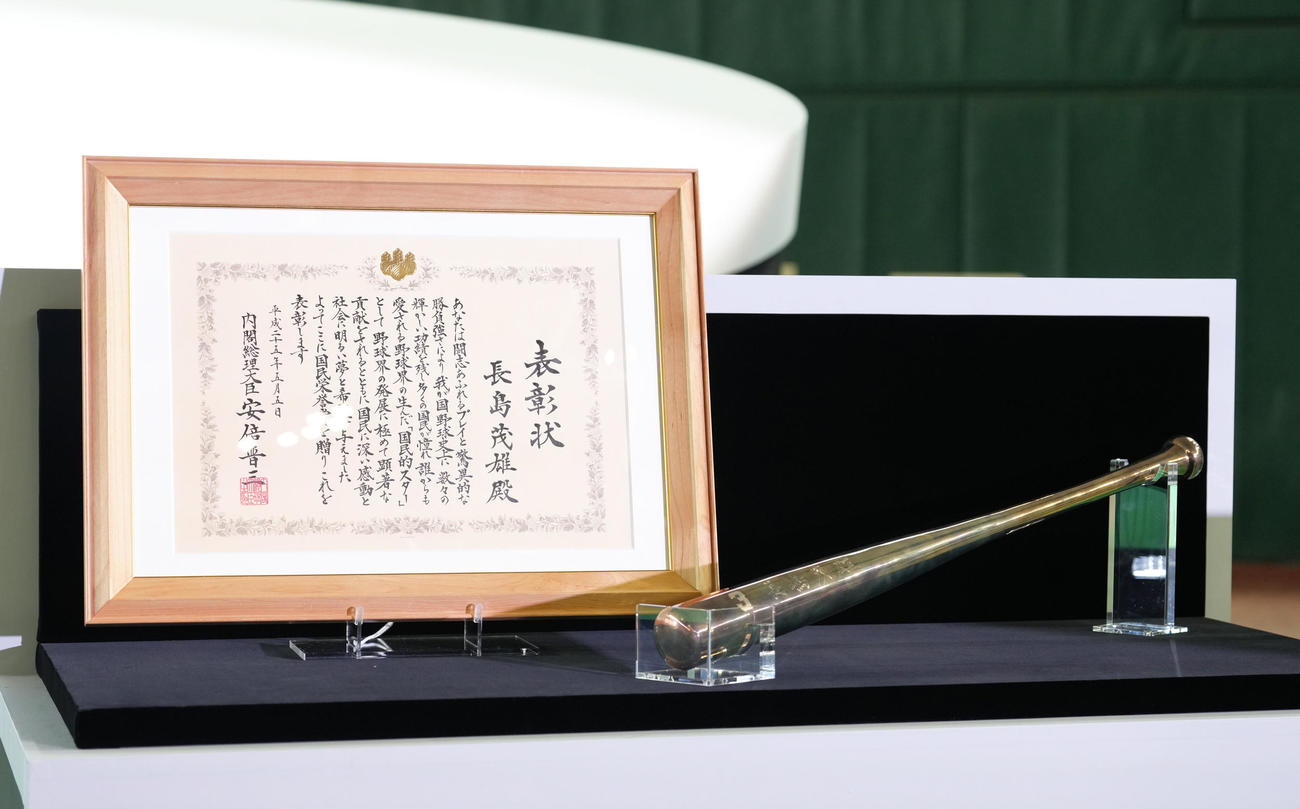 表彰状
長島茂雄殿
あなたは闘志あふれるプレイと驚異的な
勝負強さにより我が国野球史上に数々の
輝かしい功績を残し多くの国民が憧れ誰からも
愛される野球界の生んだ「国民的スター」
として野球界の発展に極めて顕著な
貢献をされるとともに国民に深い感動と
社会に明るい夢と希 与えました
よってここに国民栄誉 を贈りこれを
表彰します
平成二十五年五月五日
内閣総理大臣 安倍晋三